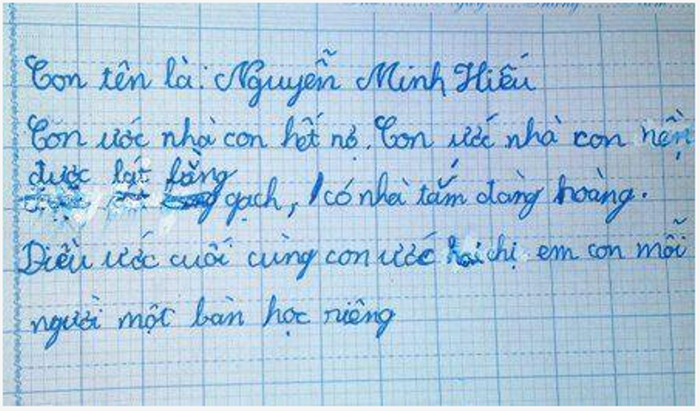 Con tên là: Nguyễn Minh Hiếu
Con ước nhà con hết nợ. Con ước nhà con nền
được lát bằng
gạch, có nhà tắm đàng hoàng.
Điều ước cuối cùng con ước hai chị em con mỗi
người một bàn học riêng